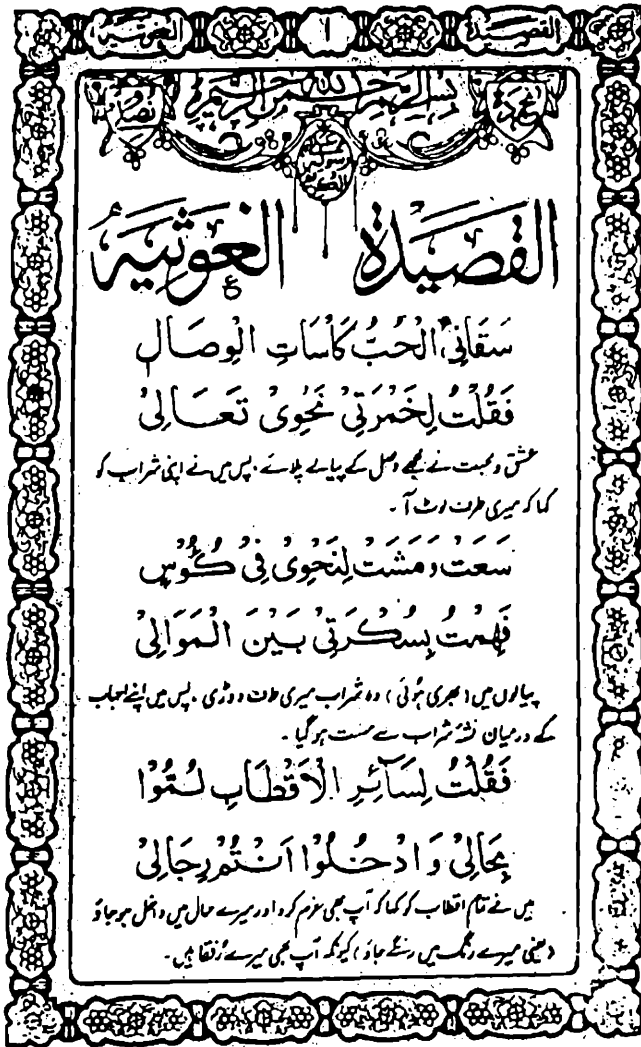 القصيدة
١
الغوثية
بسم الله الرحمن الرحيم
نحمده
ونصلي
رسوله الكريم
القصيدة الغوثية
سَقَانِی الْحُبُّ كَأْسَاتِ الْوِصَالِ
فَقُلْتُ لِخَمْرَتِیْ نَحْوِیْ تَعَالِیْ
عشق و محبت نے مجھے وصل کے پیالے پلائے . پس میں نے اپنی شراب کو
کہا کہ میری طرف لوٹ آ ۔
سَعَتْ وَمَشَتْ لِنَحْوِیْ فِیْ كُؤُسٍ
فَهِمْتُ بِسُكْرَتِیْ بَيْنَ الْمَوَالِیْ
پیالوں میں ( بھری ہوئی ) وہ شراب میری طرف دوڑی . پس میں اپنے احباب
کے درمیان نشۂ شراب سے مست ہو گیا ۔
فَقُلْتُ لِسَآئِرِ الْاَقْطَابِ لُمُّوْا
بِحَالِیْ وَادْخُلُوْا اَنْتُمْ رِجَالِیْ
میں نے تمام اقطاب کو کہا کہ آپ بھی عزم کرو اور میرے حال میں داخل ہو جاؤ
( یعنی میرے رنگ میں رنگے جاؤ ) کیونکہ آپ بھی میرے رفقا ہیں ۔